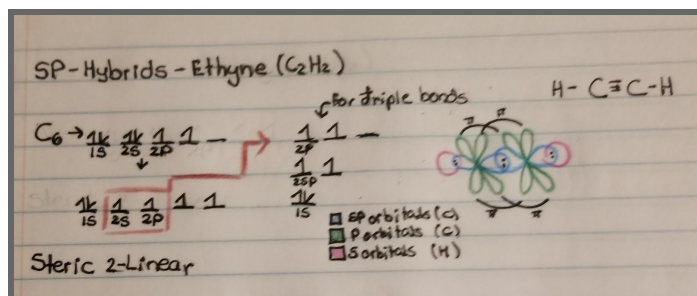 SP-Hybrids-Ethyne (C2H2)
For triple bonds
H-C≡C-H
C6 → 1s 2s 2p
2p
2sp
1s
1s 2s 2p
π π
π π
SP orbitals (C)
P orbitals (C)
S orbitals (H)
Steric 2-Linear